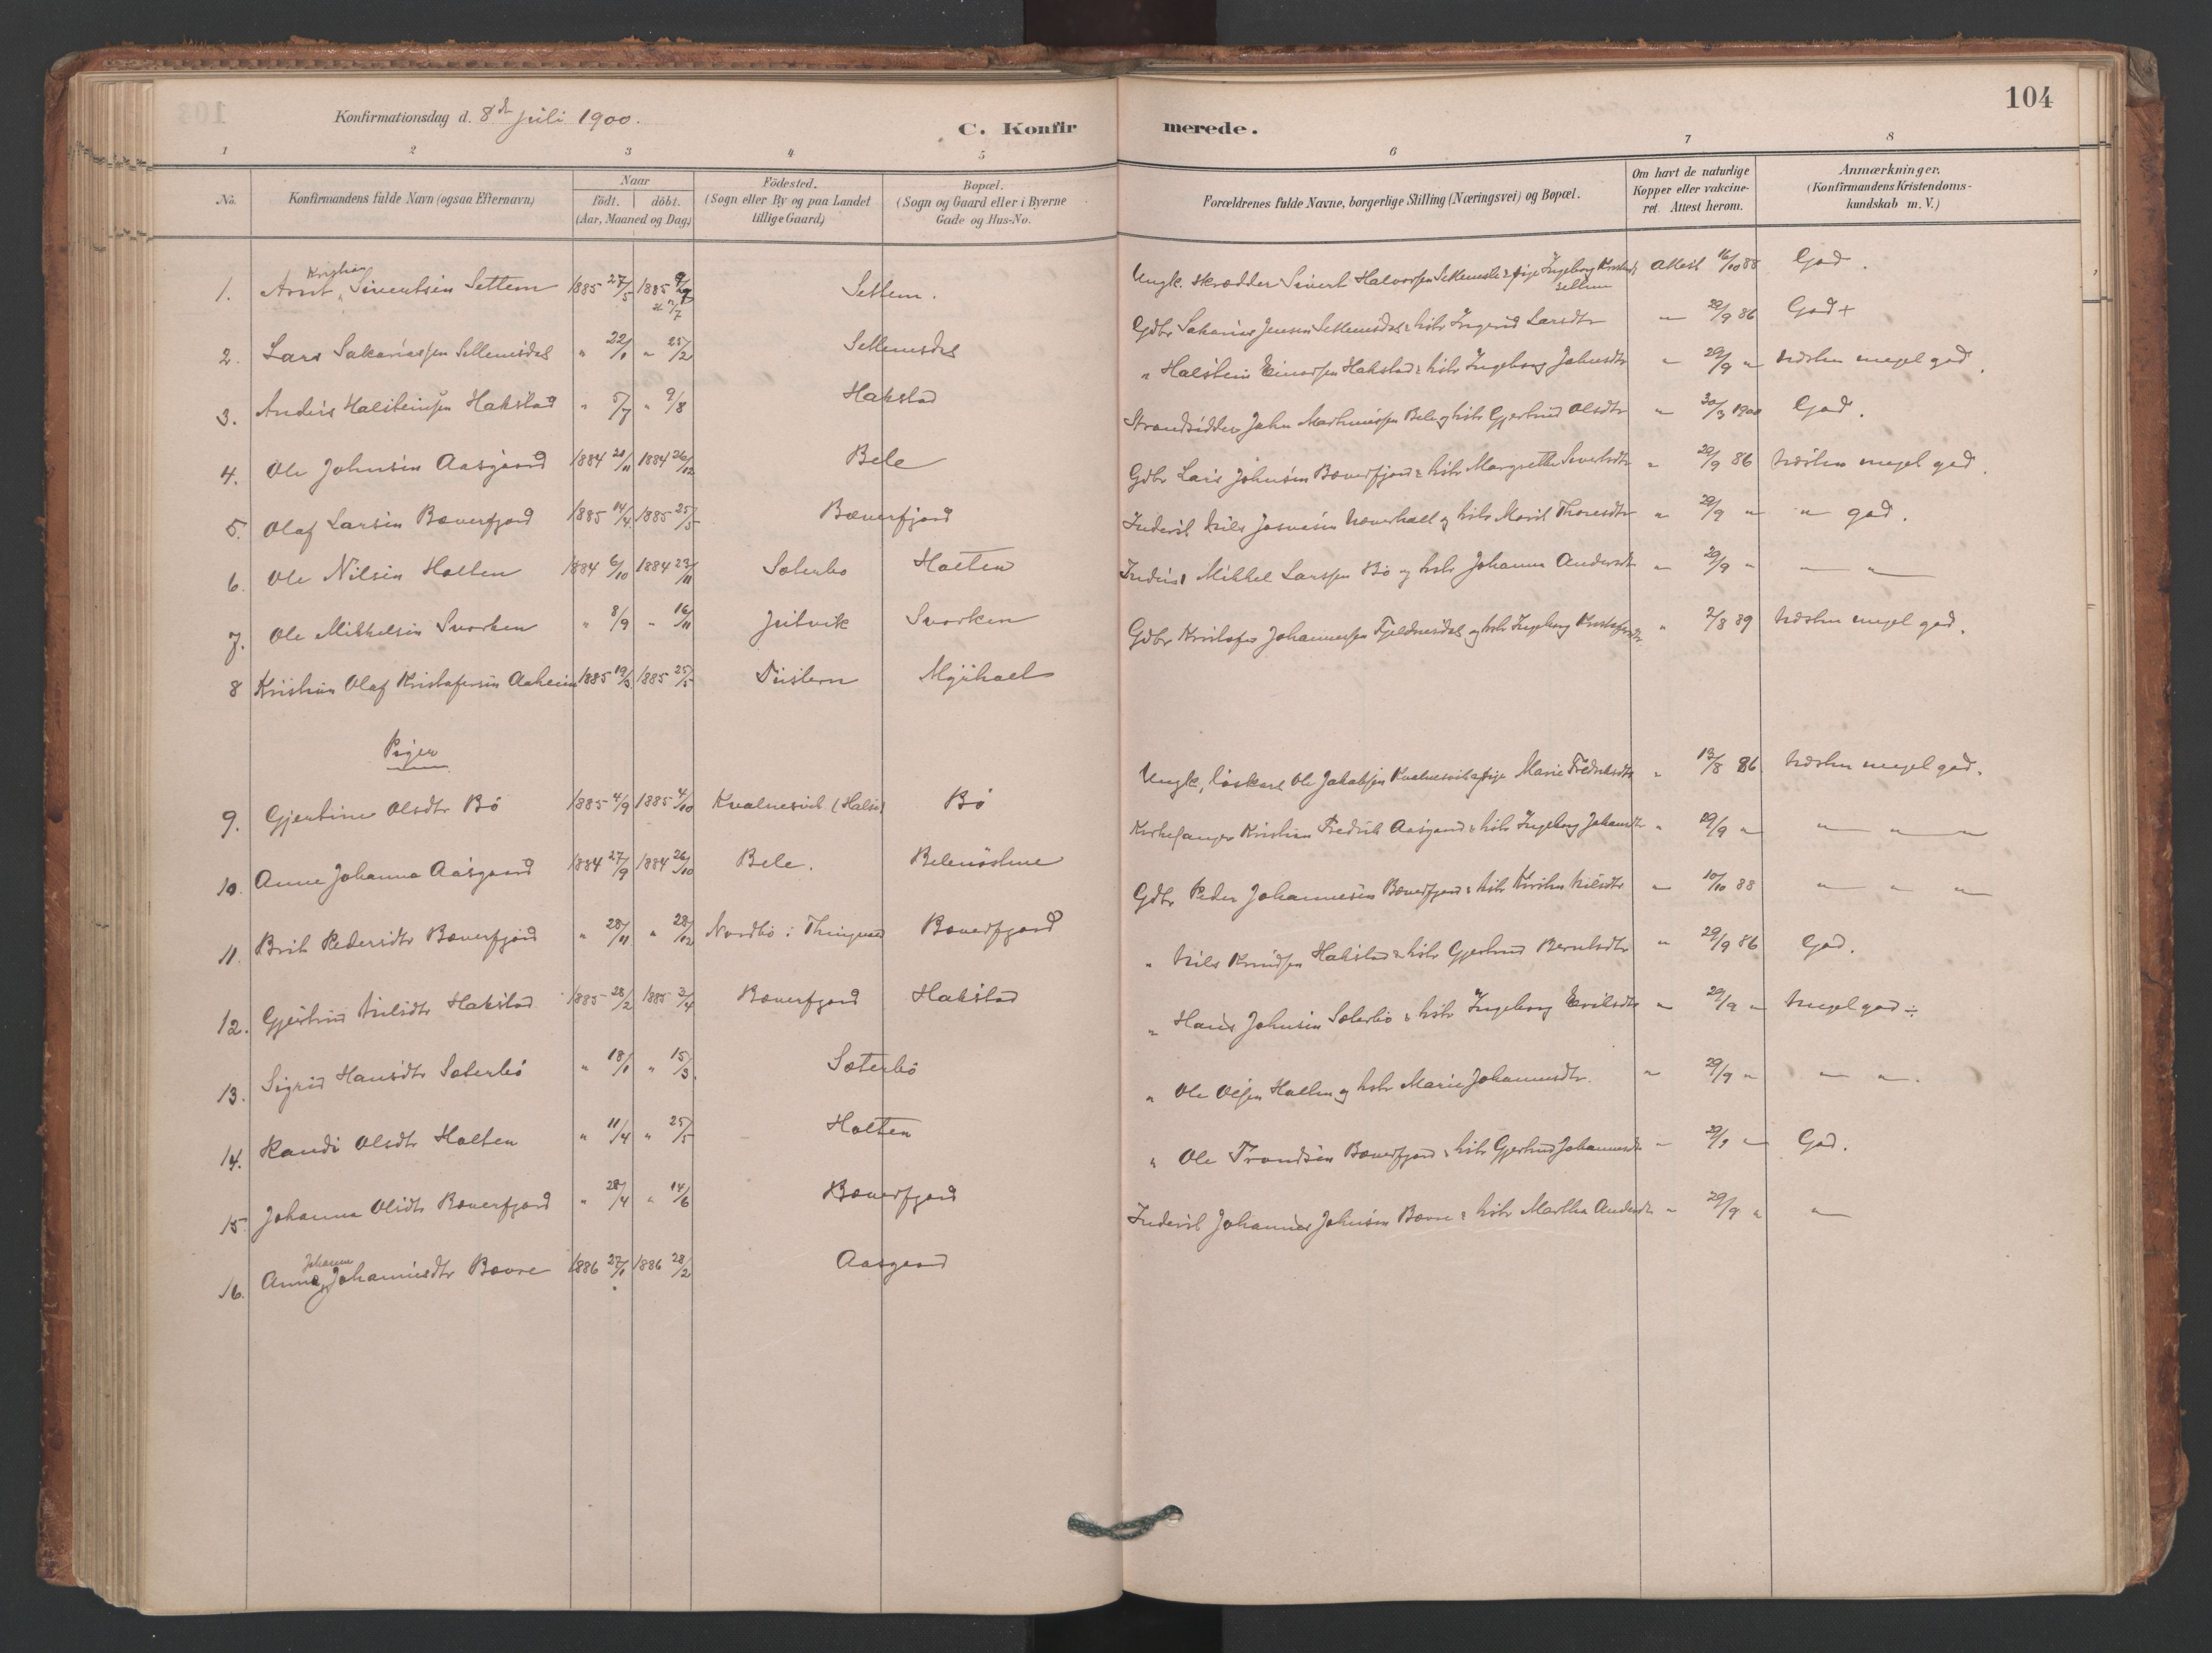 104
Konfirmationsdag d. 8de juli 1900.
C. Konfirmerede.
1 2 3 4 5 6 7 8
No. Konfirmandens fulde Navn (ogsaa Efternavn) Naar födt. döbt. (Aar, Maaned og Dag) Födested. (Sogn eller By og paa Landet tillige Gaard) Bopæl. (Sogn og Gaard eller i Byerne Gade og Hus-No. Forældrenes fulde Navne, borgerlige Stilling (Næringsvei) og Bopæl. Om havt de naturlige Kopper eller vakcineret. Attest herom. Anmærkninger. (Konfirmandens Kristendomskundskab m. V.)
1. Arnt Kristian Sivertsen Settem 1885 27/5 1885 Settem. Ungk. skrædder Sivert Halvorsen Settemsli & pige Ingeborg Settem Attest 16/10 88 God.
2. Lars Sakariassen Settemsdal " 22/1 " 25/2 Settemsdal Gdbr Sakarias Jensen Settemsdal & hstr Ingerid Larsdtr " 29/9 86 God +
3. Anders Halsteinsen Hakstad " 5/7 " 9/8 Hakstad " Halstein Einarsen Hakstad & hstr Ingeborg Johnsdtr " 29/9 " Næsten meget god.
4. Ole Johnsen Aasgaard 1884 21/11 1884 26/12 Bele Strandsidder John Mathiassen Bele og hstr Gjertrud Olsdtr " 30/3 1900 God.
5. Olaf Larsen Bæverfjord 1885 14/4 1885 25/5 Bæverfjord Gdbr Lars Johnsen Bæverfjord & hstr Margrethe Sivertsdtr " 29/9 86 Næsten meget god.
6. Ole Nilsen Holten 1884 6/10 1884 23/11 Sæterbø Holten Inderst Nils og hstr Marit Thoresdtr " 29/9 " " god.
7. Ole Mikkelsen Svorken " 8/9 " 16/11 Jutvik Svorken Inderst Mikkel Larssen Bø og hstr Johanna Andersdtr " 29/9 " " "
8 Kristian Olaf Kristofersen Aaheim 1885 19/3 1885 25/5 Myrhael Gdbr Kristofer Johannessen Fjeldnesdal og hstr Ingeborg Kristofersdtr " 7/8 89 Næsten meget god.
Piger
9. Gjertine Olsdtr Bö 1885 4/9 1885 4/10 Kvalnesvik (Halse) Bö Ungk, löskarl Ole Jakobsen Kvalnesvik & pige Marie Fredriksdtr " 13/8 86 Næsten meget god.
10. Anne Johanna Aasgaard 1884 27/9 1884 26/10 Bele. Kirkesanger Kristian Fredrik Aasgaard & hstr Ingeborg Johansdtr " 29/9 " " " "
11. Brit Pedersdtr Bæverfjord " 28/11 " 28/12 Nordbö i Thingvold Bæverfjord Gdbr Peder Johannessen Bæverfjord & hstr Kirsten Nilsdtr " 10/10 88 " " "
12. Gjertrud Nilsdtr Hakstad 1885 28/2 1885 3/4 Bæverfjord Hakstad " Nils Knudsen Hakstad & hstr Gjertrud Berntsdtr " 29/9 86 God.
13. Sigrid Hansdtr Sæterbö " 18/1 " 15/3. Sæterbö " Hans Johnsen Sæterbö & hstr Ingeborg Eriksdtr " 29/9 " Meget god ÷
14. Randi Olsdtr Holten " 11/4 " 25/5 Holten " Ole Olsen Holten og hstr Marie Johannesdtr. " 29/9 " " ".
15. Johanna Olsdtr Bæverfjord " 28/4 " 14/6 Bæverfjord " Ole Trondsen Bæverfjord & hstr Gjertrud Johannesdtr " 29/9 " God.
16. Anne Johanna Johannesdtr Bævre 1886 27/1 1886 28/2 Aasgaard Inderst Johannes Johnsen Bævre & hstr Martha Andersdtr " 29/9 " "